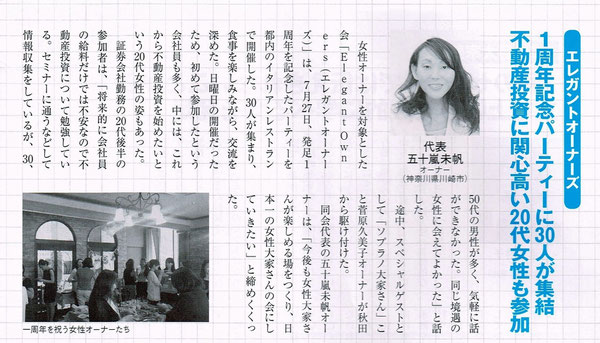 エレガントオーナーズ
1周年記念パーティーに30人が集結
不動産投資に関心高い20代女性も参加
代表
五十嵐未帆
オーナー
(神奈川県川崎市)
女性オーナーを対象とした
会「Elegant Own
ers(エレガントオーナー
ズ)」は、7月27日、発足1
周年を記念したパーティーを
都内のイタリアンレストラン
で開催した。30人が集まり、
食事を楽しみながら、交流を
深めた。日曜日の開催だった
ため、初めて参加したという
会社員も多く、中には、これ
から不動産投資を始めたいと
いう20代女性の姿もあった。
証券会社勤務の20代後半の
参加者は、「将来的に会社員
の給料だけでは不安なので不
動産投資について勉強してい
る。セミナーに通うなどして
情報収集をしているが、30、
50代の男性が多く、気軽に話
ができなかった。同じ境遇の
女性に会えてよかった」と話
した。
途中、スペシャルゲストと
して「ソプラノ大家さん」こ
と菅原久美子オーナーが秋田
から駆け付けた。
同会代表の五十嵐未帆オー
ナーは、「今後も女性大家さ
んが楽しめる場をつくり、日
本一の女性大家さんの会にし
ていきたい」と締めくくっ
た。
一周年を祝う女性オーナーたち